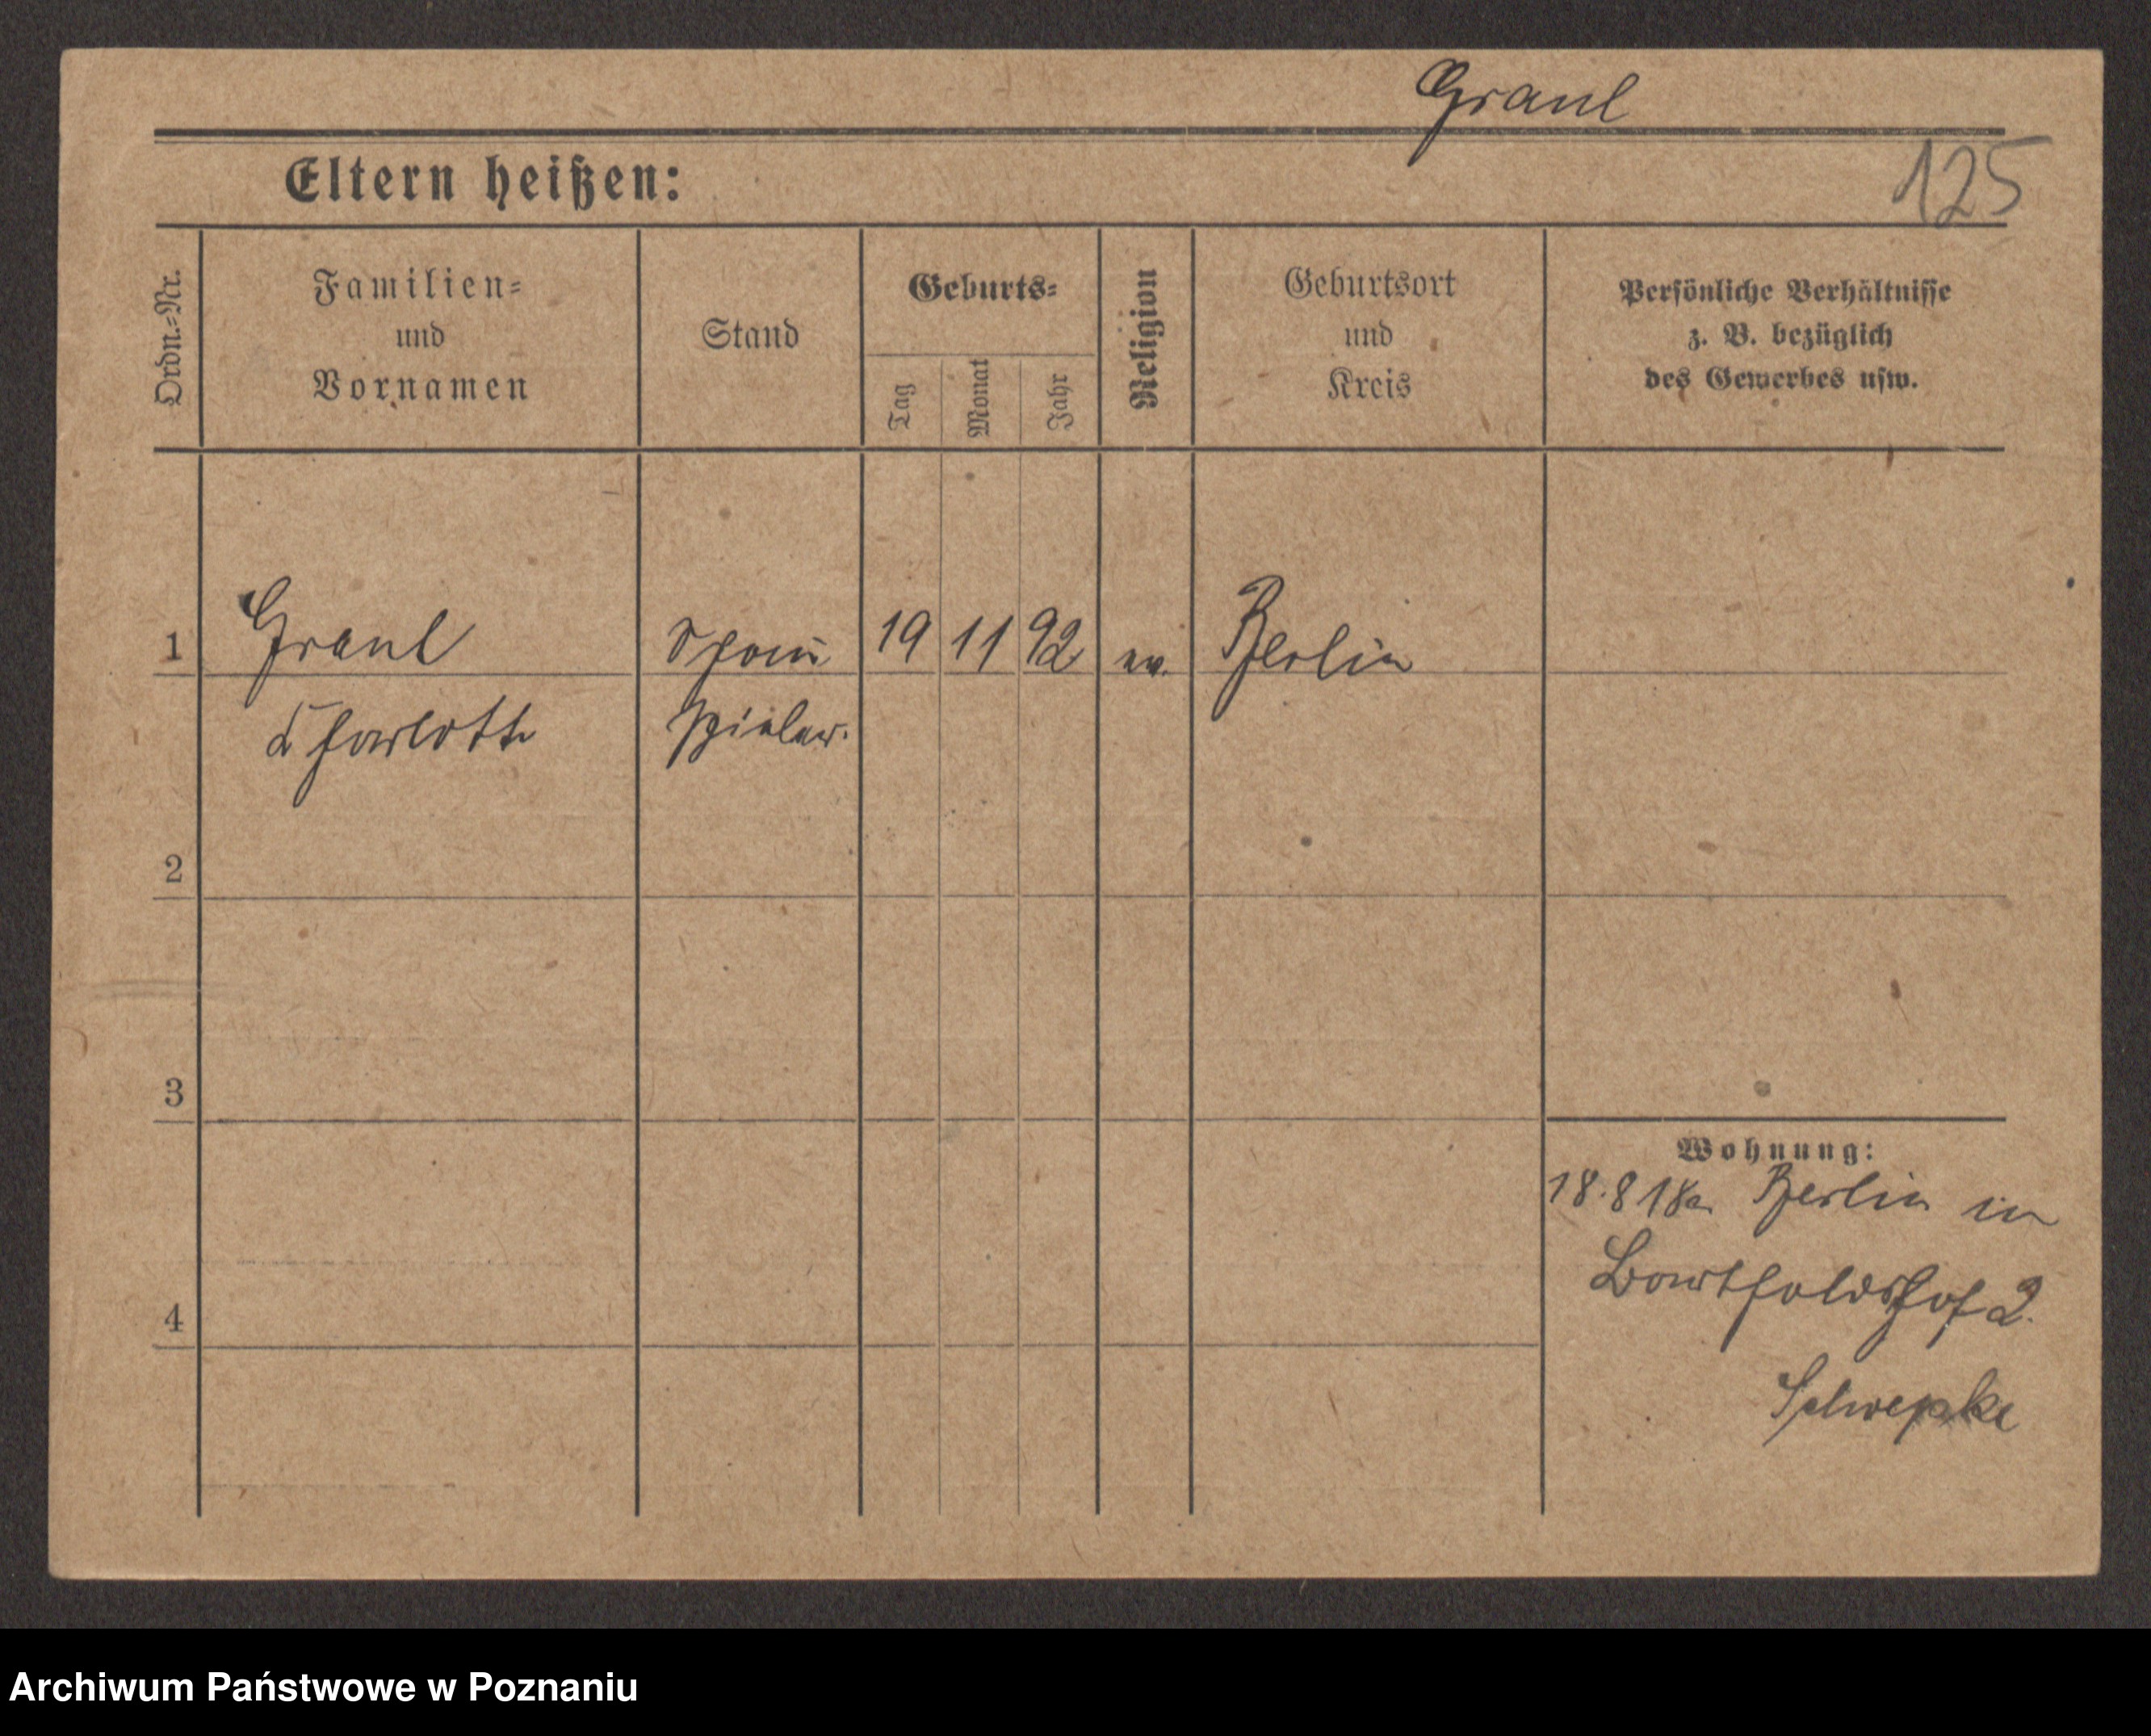 Graul
125
Eltern heißen:
Ordn.-Nr.
Familien-
und
Vornamen
Stand
Geburts-
Tag
Monat
Jahr
Religion
Geburtsort
und
Kreis
Persönliche Verhältnisse
z. B. bezüglich
des Gewerbes usw.
1
Graul
Schau
19
11
92
ev.
Berlin
Charlotte
spieler.
2
3
Wohnung:
18.8 18 Berlin in
Bartholdshof 2.
4
Archiwum Państwowe w Poznaniu